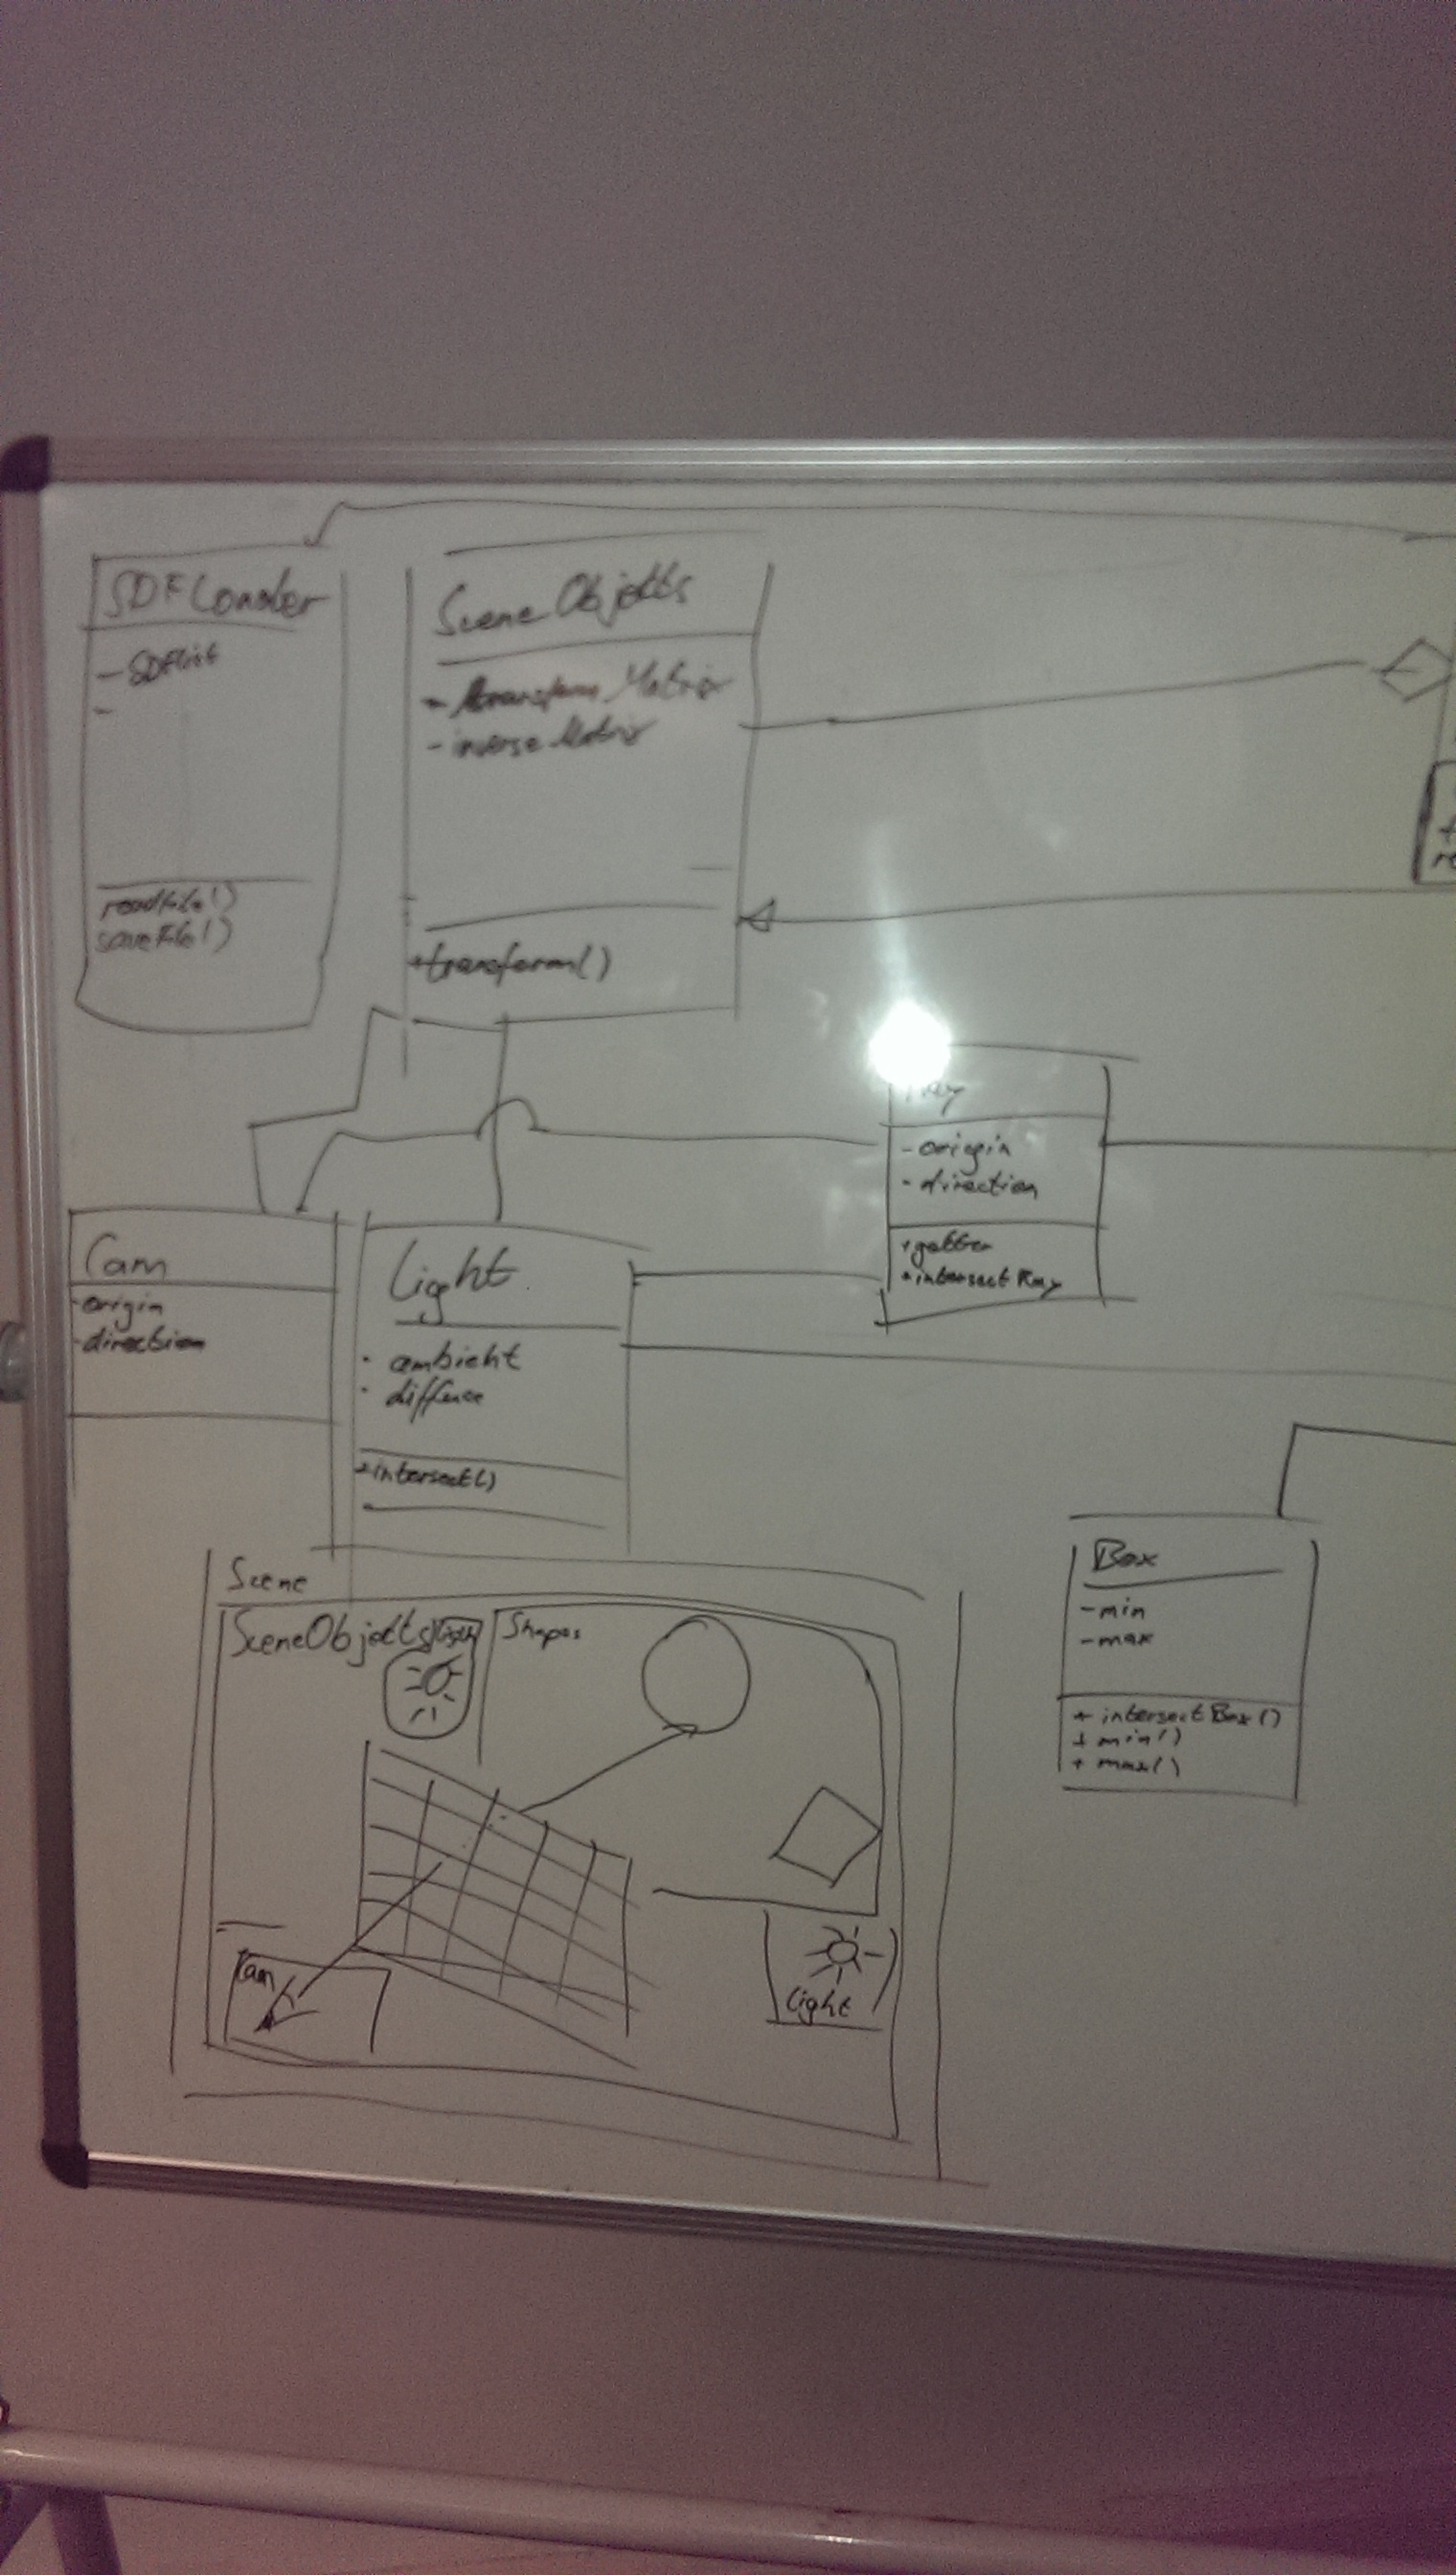 SDFLoader
- SDFlist
-
readFile()
saveFile()
SceneObjekts
- transform Matrix
- inverse Matrix
+transform()
+
re
Ray
- origin
- direction
+getter
+intersect Ray
Cam
-origin
-direction
Light
- ambient
- diffuse
+intersect()
Box
-min
-max
+ intersectBox()
+ min()
+ max()
Scene
SceneObjekts
Light
Shapes
Cam
Light